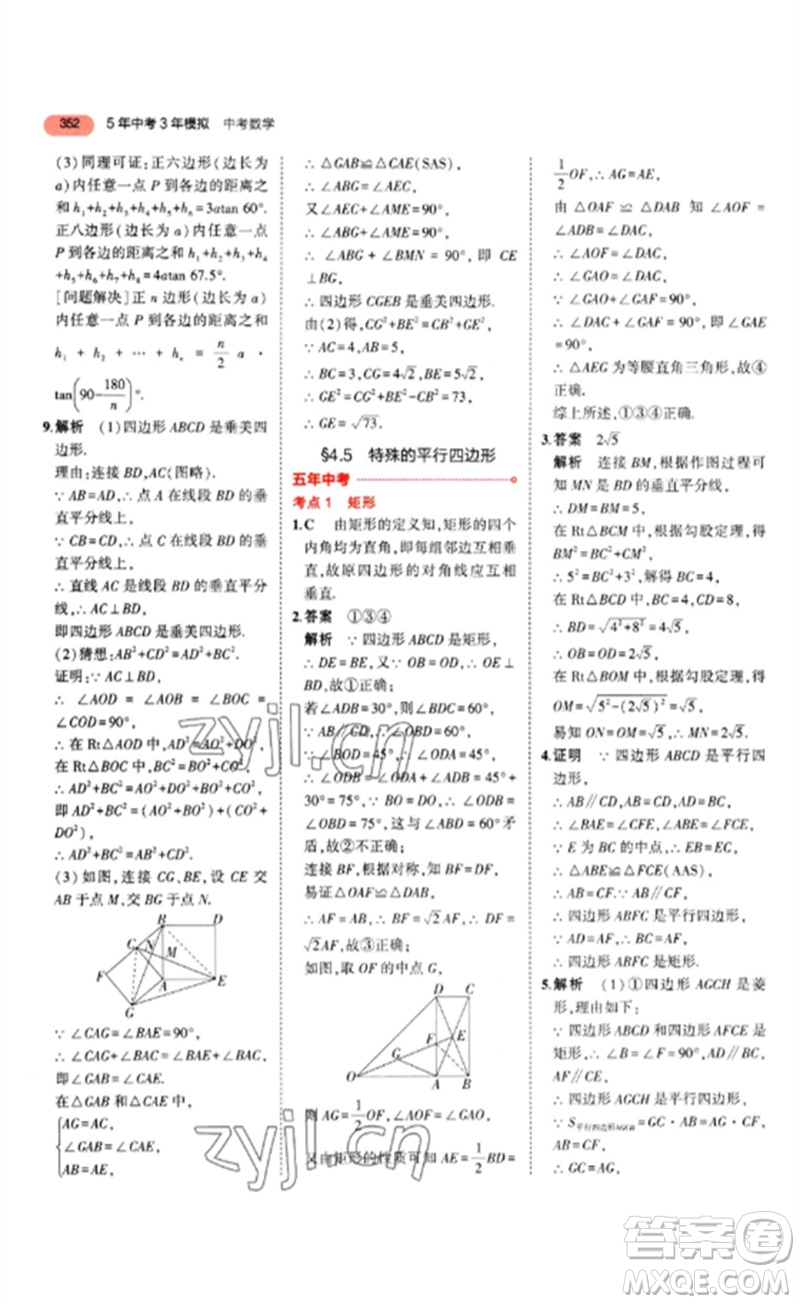 352 5年中考3年模拟 中考数学
(3)同理可证:正六边形(边长为
a)内任意一点 P 到各边的距离之
和 h₁+h₂+h₃+h₄+h₅+h₆=3atan 60°.
正八边形(边长为 a)内任意一点
P 到各边的距离之和 h₁+h₂+h₃+h₄
+h₅+h₆+h₇+h₈=4atan 67.5°.
[问题解决]正 n 边形(边长为 a)
内任意一点 P 到各边的距离之和
h₁ + h₂ + ⋯ + hₙ = n/2 a ·
tan(90-180/n)°.
9.解析 (1)四边形 ABCD 是垂美四
边形.
理由:连接 BD,AC(图略).
∵ AB=AD,∴ 点 A 在线段 BD 的垂
直平分线上,
∵ CB=CD,∴ 点 C 在线段 BD 的垂
直平分线上,
∴ 直线 AC 是线段 BD 的垂直平分
线,∴ AC⊥BD,
即四边形 ABCD 是垂美四边形.
(2)猜想:AB²+CD²=AD²+BC².
证明:∵ AC⊥BD,
∴ ∠AOD = ∠AOB = ∠BOC =
∠COD=90°,
∴ 在 Rt△AOD 中,AD²=AO²+DO²,
在 Rt△BOC 中,BC²=BO²+CO²,
∴ AD²+BC²=(AO²+BO²)+(CO²+
DO²),
∴ AD²+BC²=AB²+CD².
(3)如图,连接 CG、BE,设 CE 交
AB 于点 M,交 BG 于点 N.
B D
C N
M
F
A E
G
∵ ∠CAG=∠BAE=90°,
∴ ∠CAG+∠BAC=∠BAE+∠BAC,
即 ∠GAB=∠CAE.
在△GAB 和△CAE 中,
AG=AC,
∠GAB=∠CAE,
AB=AE,
∴ △GAB≌△CAE(SAS),
∴ ∠ABG=∠AEC,
又∠AEC+∠AME=90°,
∴ ∠ABG + ∠BMN = 90°, 即 CE
⊥BG,
∴ 四边形 CGEB 是垂美四边形.
由(2)得,CG²+BE²=CB²+GE²,
∵ AC=4,AB=5,
∴ BC=3,CG=4√2,BE=5√2,
∴ GE²=CG²+BE²-CB²=73,
∴ GE=√73.
§4.5 特殊的平行四边形
五年中考
考点1 矩形
1.C 由矩形的定义知,矩形的四个
内角均为直角,即每组邻边互相垂
直,故原四边形的对角线应互相
垂直.
2.答案 ①③④
解析 ∵ 四边形 ABCD 是矩形,
∴ DE=BE,又∵ OB=OD,∴ OE⊥
BD,故①正确;
若∠ADB=30°,则∠BDC=60°,
∵ ∠BOD = 45°, ∴ ∠ODA = 45°,
∴ ∠ODB = ∠ODA + ∠ADB = 45° +
30°=75°,∵ BO=DO,∴ ∠ODB=
∠OBD=75°,这与∠ABD=60°矛
盾,故②不正确;
连接 BF,
易证△OAF≌△DAB,
∴ AF = AB, ∴ BF = √2 AF, ∴ DF =
√2AF,故③正确;
如图,取 OF 的中点 G,
D C
F E
G
O A B
则 AG=1/2OF,∠AOF=∠GAO,
又由矩形的性质可知 AE=1/2BD=
1/2OF,∴ AG=AE,
由 △OAF ≌ △DAB 知 ∠AOF =
∠ADB=∠DAC,
∴ ∠AOF=∠DAC,
∴ ∠GAO=∠DAC,
∵ ∠GAO+∠GAF=90°,
∴ ∠DAC + ∠GAF = 90° = ∠GAE,
∴ △AEG 为等腰直角三角形,故④
正确.
综上所述,①③④正确.
3.答案 2√5
解析 连接 BM,根据作图过程可
知 MN 是 BD 的垂直平分线,
∴ DM=BM=5,
在 Rt△BCM 中,根据勾股定理,得
BM²=BC²+MC²,
∴ 5²=BC²+3²,解得 BC=4,
在 Rt△BCD 中,BC=4,CD=8,
∴ BD=√4²+8²=4√5,
∴ OB=OD=2√5,
在 Rt△BOM 中,根据勾股定理,得
OM=√5²-(2√5)²=√5,
易知 ON=OM=√5,∴ MN=2√5.
4.证明 ∵ 四边形 ABCD 是平行四
边形,
∴ AB∥CD,AB=CD,
∴ ∠BAE=∠CFE,∠ABE=∠FCE,
∵ E 为 BC 的中点,∴ EB=EC,
∴ △ABE≌△FCE(AAS),
∴ AB=CF.∵ AB∥CF,
∴ 四边形 ABFC 是平行四边形,
∵ AD=AF,∴ BC=AF,
∴ 四边形 ABFC 是矩形.
5.解析 (1)①四边形 AGCH 是菱
形,理由如下:
∵ 四边形 ABCD 和四边形 AFCE 是
矩形,∴ ∠B=∠F=90°,AD∥BC,
AF∥CE,
∴ 四边形 AGCH 是平行四边形,
∵ S平行四边形AGCH=GC·AB=AG·CF,
AB=CF,
∴ GC=AG,
zyjl.cn
zyjl.cn
答案圈
MXQE.COM